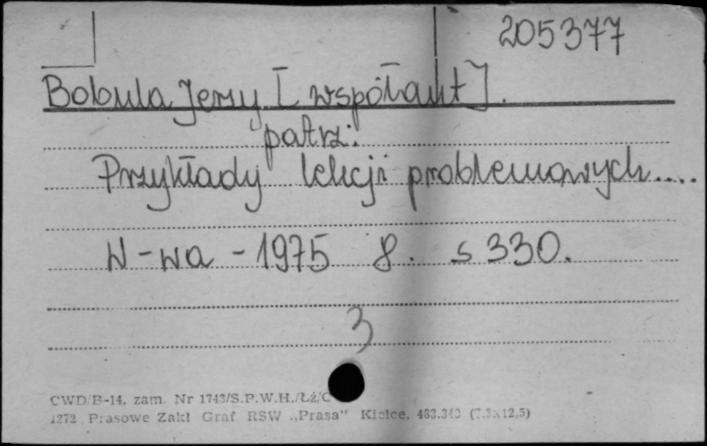 205377
Bobula Jerzy [współaut].
patrz:
Przykłady lekcji problemowych.....
W-wa - 1975 8. s 330.
3
CWD/B-14. zam. Nr 1743/S.P.W.H./Łź/C
1272 Prasowe Zakł Graf RSW „Prasa" Kielce, (7.5x12,5)